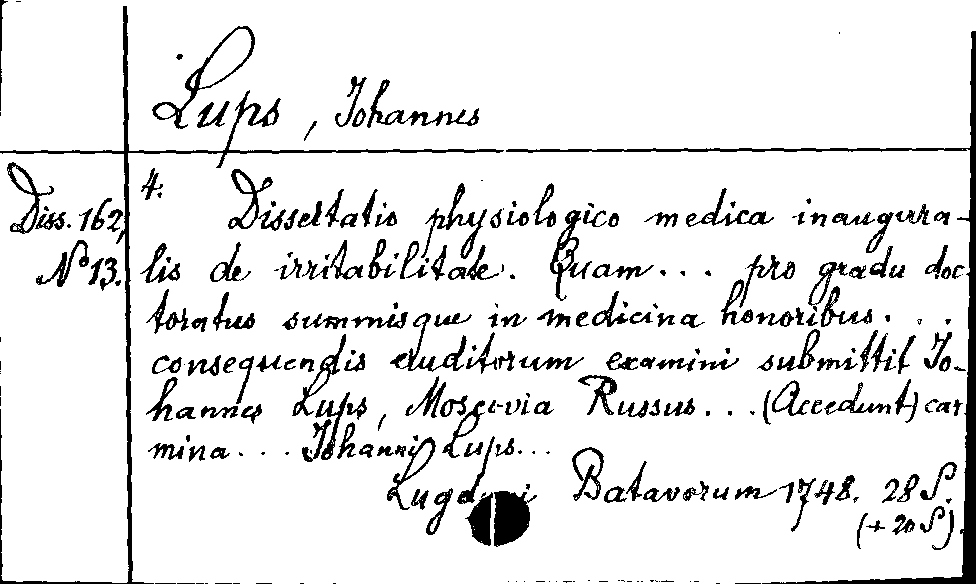 Lups, Johannes
4.
Diss. 162,
No 13.
Dissertatio physiologico medica inaugura-
lis de irritabilitate. Quam... pro gradu doc-
toratus summisque in medicina honoribus...
consequendis eruditorum examini submittit Jo-
hannes Lups, Moscovia Russus... (Accedunt) car-
mina... Johanni Lups...
Lugduni Batavorum 1748. 28 S.
(+ 20 S).